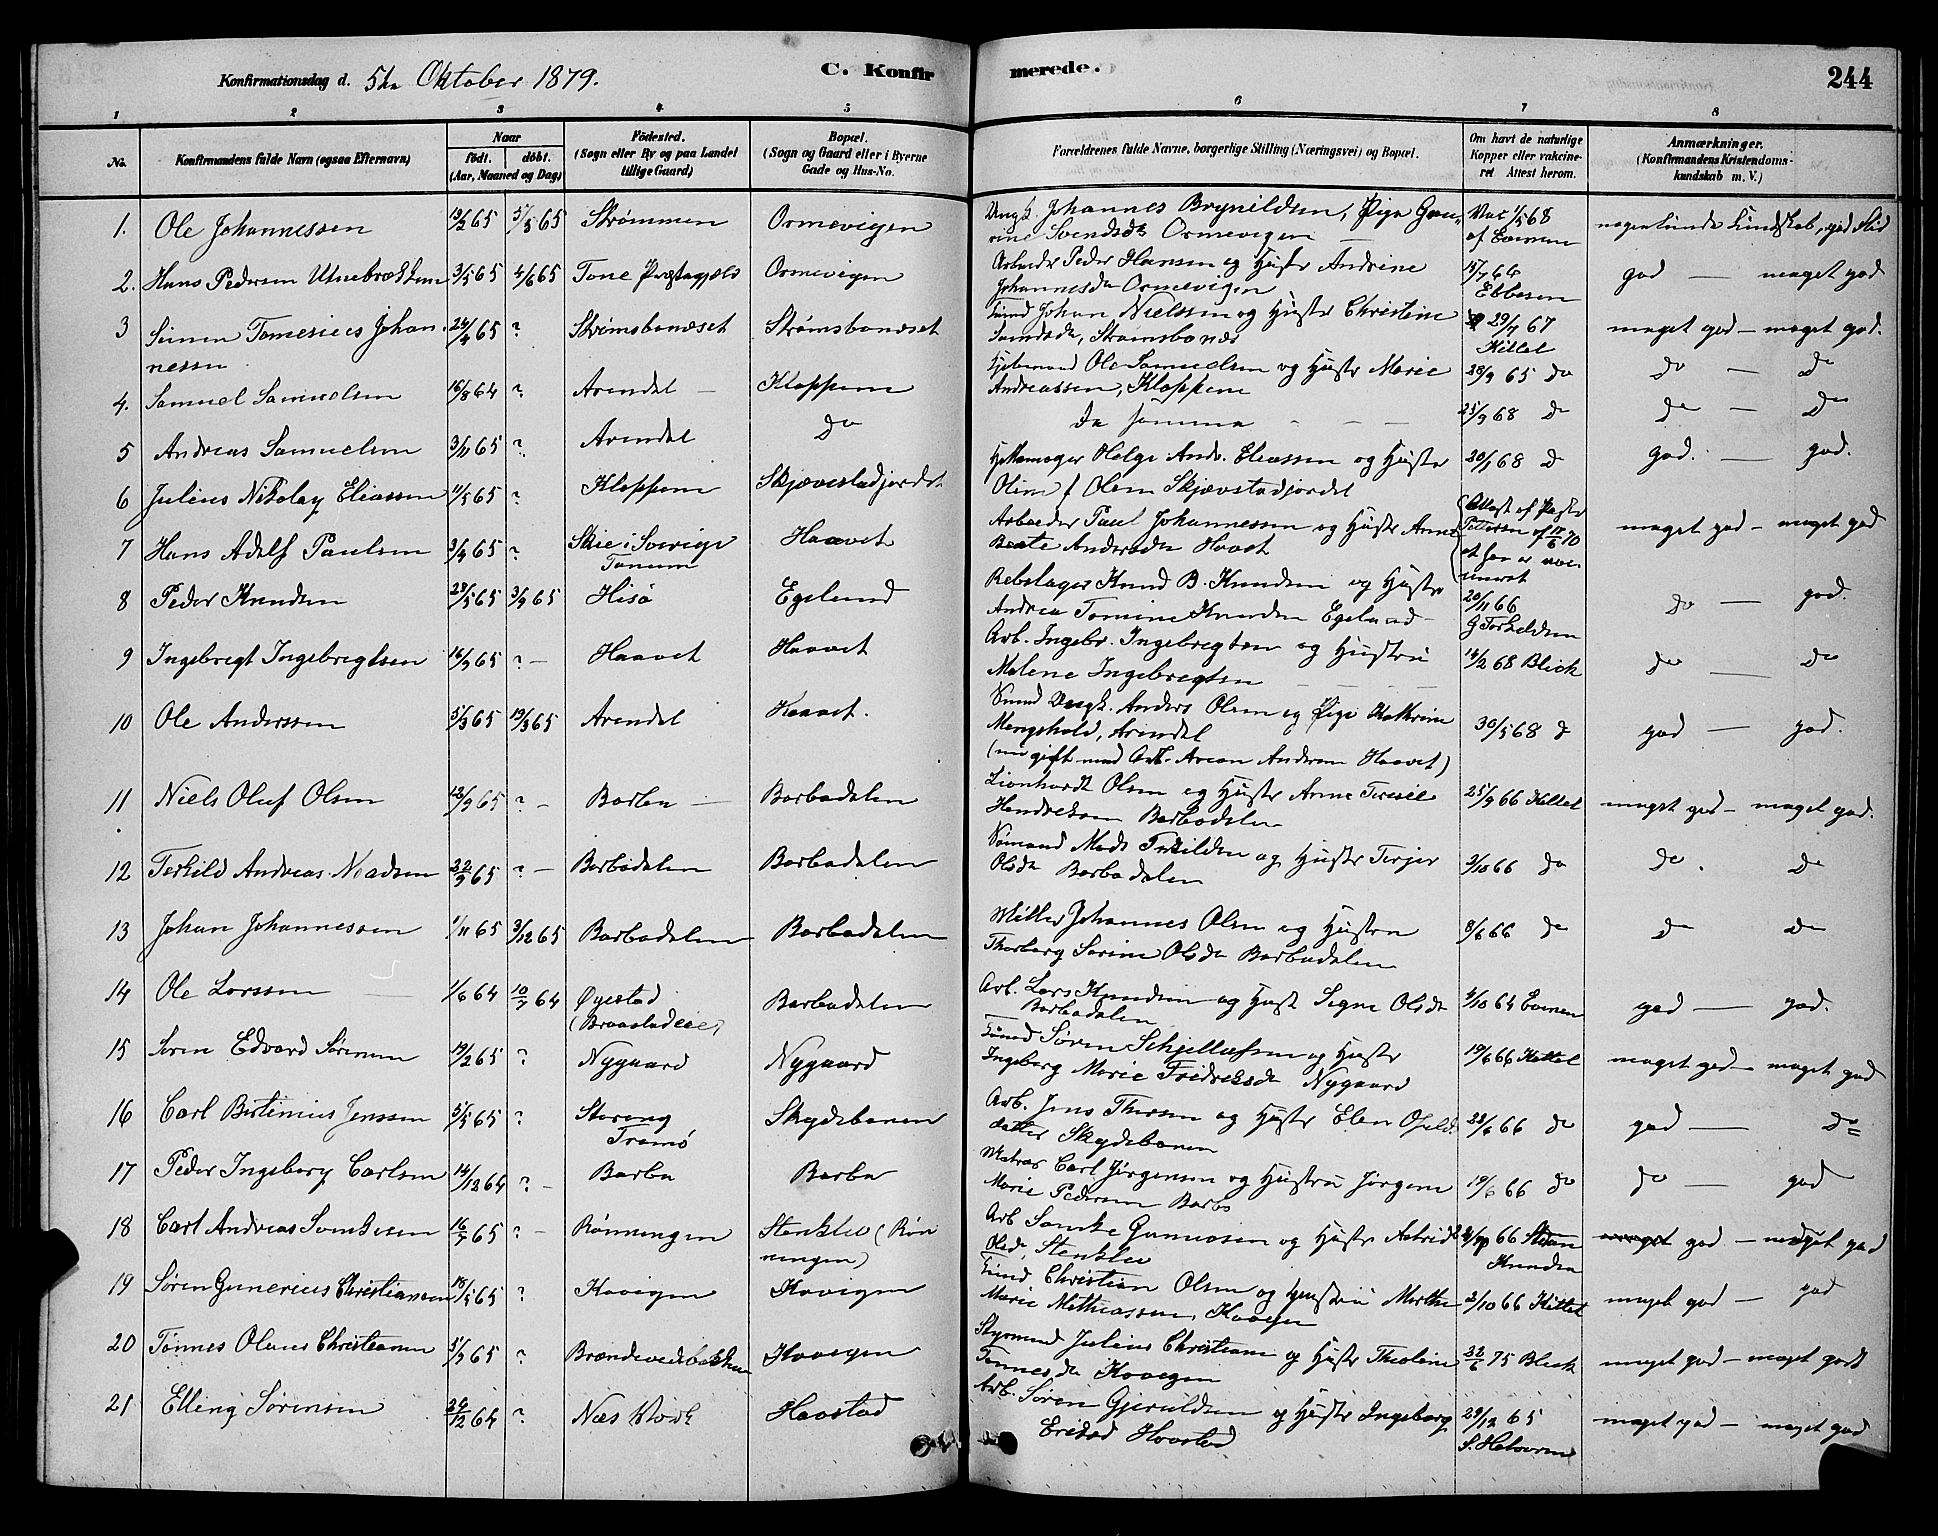 Konfirmationsdag d. 5te Oktober 1879.
C. Konfir
merede.
244
1 2 3 4 5 6 7 8
No.
Konfirmandens fulde Navn (ogsaa Efternavn)
Naar
født. døbt.
(Aar, Maaned og Dag)
Födested.
(Sogn eller By og paa Landet
tillige Gaard)
Bopæl.
(Sogn og Gaard eller i Byerne
Gade og Hus-No.
Forældrenes fulde Navne, borgerlige Stilling (Næringsvei) og Bopæl.
Om havt de naturlige
Kopper eller vakcine-
ret Attest herom.
Anmærkninger.
(Konfirmandens Kristendoms-
kundskab m. V.)
1. Ole Johannessen 13/2 65 5/3 65 Strømmen Ormevigen Ungk. Johannes Brynildsen, Pige
Svendsdr Ormevigen Vac 1/5 68
nogenlunde Kundskab, god Flid
2. Hans Pedersen 3/5 65 4/6 65 Tone Ormevigen Arbeider Peder Hansen og Hustr Andrine
Johannesdr Ormevigen 15/7 66 Ebbesen god — meget god
3 Johan
nessen 26/4 65 ? Strømsbonæset Strømsbonæset Johan Nielssen og Hustr Christine
Strømsbonæs 29/7 67 Kittel meget god — meget god.
4. Samuel Samuelsen 16/8 64 ? Arendal — Kloppene Ole Samuelsen og Hustr Marie
Andreassen, Kloppene 28/9 65 do do — do
5 Andreas Samuelsen 3/11 65 ? Arendal do De samme — — 25/9 68 do do — do
6 Julius Nikolay Eliassen 11/5 65 ? Kloppene Skjævestadjordet Helge Andr. Eliassen og Hustr
f Olsen Skjævstadjordet 20/1 68 d god. — god.
7 Hans Adolf Paulsen 3/4 65 ? Skie i Sverige
Tanum Haavet Arbeider Paul Johannessen og Hustr Anne
Beate Andersdr Havet Attest af
17/6 70
meget god — meget god
8 Peder Knudsen 28/5 65 3/9 65 Hisø Egelund Rebslager Knud B. Knudsen og Hustr
Andrea Tomine Knudsen Egelund 20/11 66
G Terkeldsen do — god.
9 Ingebregt Ingebregtsen 16/9 65 ? — Haavet Haavet Arb. Ingebr. Ingebregtsen og Hustru
Malene Ingebregtsen 14/2 68 Blick do — do
10 Ole Anderssen 5/3 65 19/3 65 Arendal Haavet. Ungk. Anders Olsen og Pige Kathrine
Mengshold, Arendal
(nu gift med Arb. Andersen Haavet) 30/5 68 d god — god.
11 Niels Oluf Olsen 12/9 65 ? — Barbu — Barbodalen Lionhardt Olsen og Hustr Anne Teresie
Barbodalen 25/9 66 Kittel meget god — meget god.
12 Terkild Andreas Madsen 22/9 65 ? — Barbodalen Barbodalen Sømand Mads Terkildsen og Hustr Terjer
Olsdr Barbodalen 3/10 66 do do. do
13 Johan Johannessen 1/11 65 3/12 65 Barbodalen Barbodalen Møller Johannes Olsen og Hustru
Thorborg Sørine Olsdr Barbodalen 8/6 66 do do do
14 Ole Larssen 1/6 64 10/7 64 Øyestad
(Braastadeie) Barbodalen Arb. Lars Knudsen og Hust Signe Olsdr
Barbodalen 4/10 64 Evensen god — god.
15 Søren Edvard Sørensen 19/2 65 ? Nygaard Nygaard Søren Schjellufsen og Hustr
Ingeborg Marie Fredriksdr Nygaard 19/6 66 Kittel meget god — meget god
16 Carl Bertinius Jenssen 5/5 65 ? Storeng
Tromø Skydebanen Arb. Jens Thersen og Hustr Elen
datter Skydebanen 28/6 66 do god — do
17 Peder Ingeborg Carlsen 14/12 64 ? — Barbu Barbu Matros Carl Jørgensen og Hustru Jørgine
Marie Pedersen Barbo 19/6 66 do do — god
18 Carl Andreas 16/7 65 ? — Rønningen Stenklev (Røn
ningen) Arb Gunuosen og Hustr Astrid
Olsdr, Stenklev 66
Knudsen meget god — meget god
19 Søren Gunerius Christiansen 18/5 65 ? Kovigen Kovigen Christian Olsen og Hustru Marthe
Marie Mathiassen, Kovigen 2/10 66 Kittel meget god — god
20 Tønnes Olaus Christiansen 5/9 65 ? Brændevedsbakken Kovigen Styrmand Julius Christiansen og Hustr Theoline
Tønnesdr Kovigen 22/6 75 Blick meget god — meget godt
21 Elling Sørensen 24/12 64 ? Næs Værk Havstad Arb. Søren Gjeruldsen og Hustr Ingeborg
Havstad 29/12 65
S. Halvorsen meget god — meget god